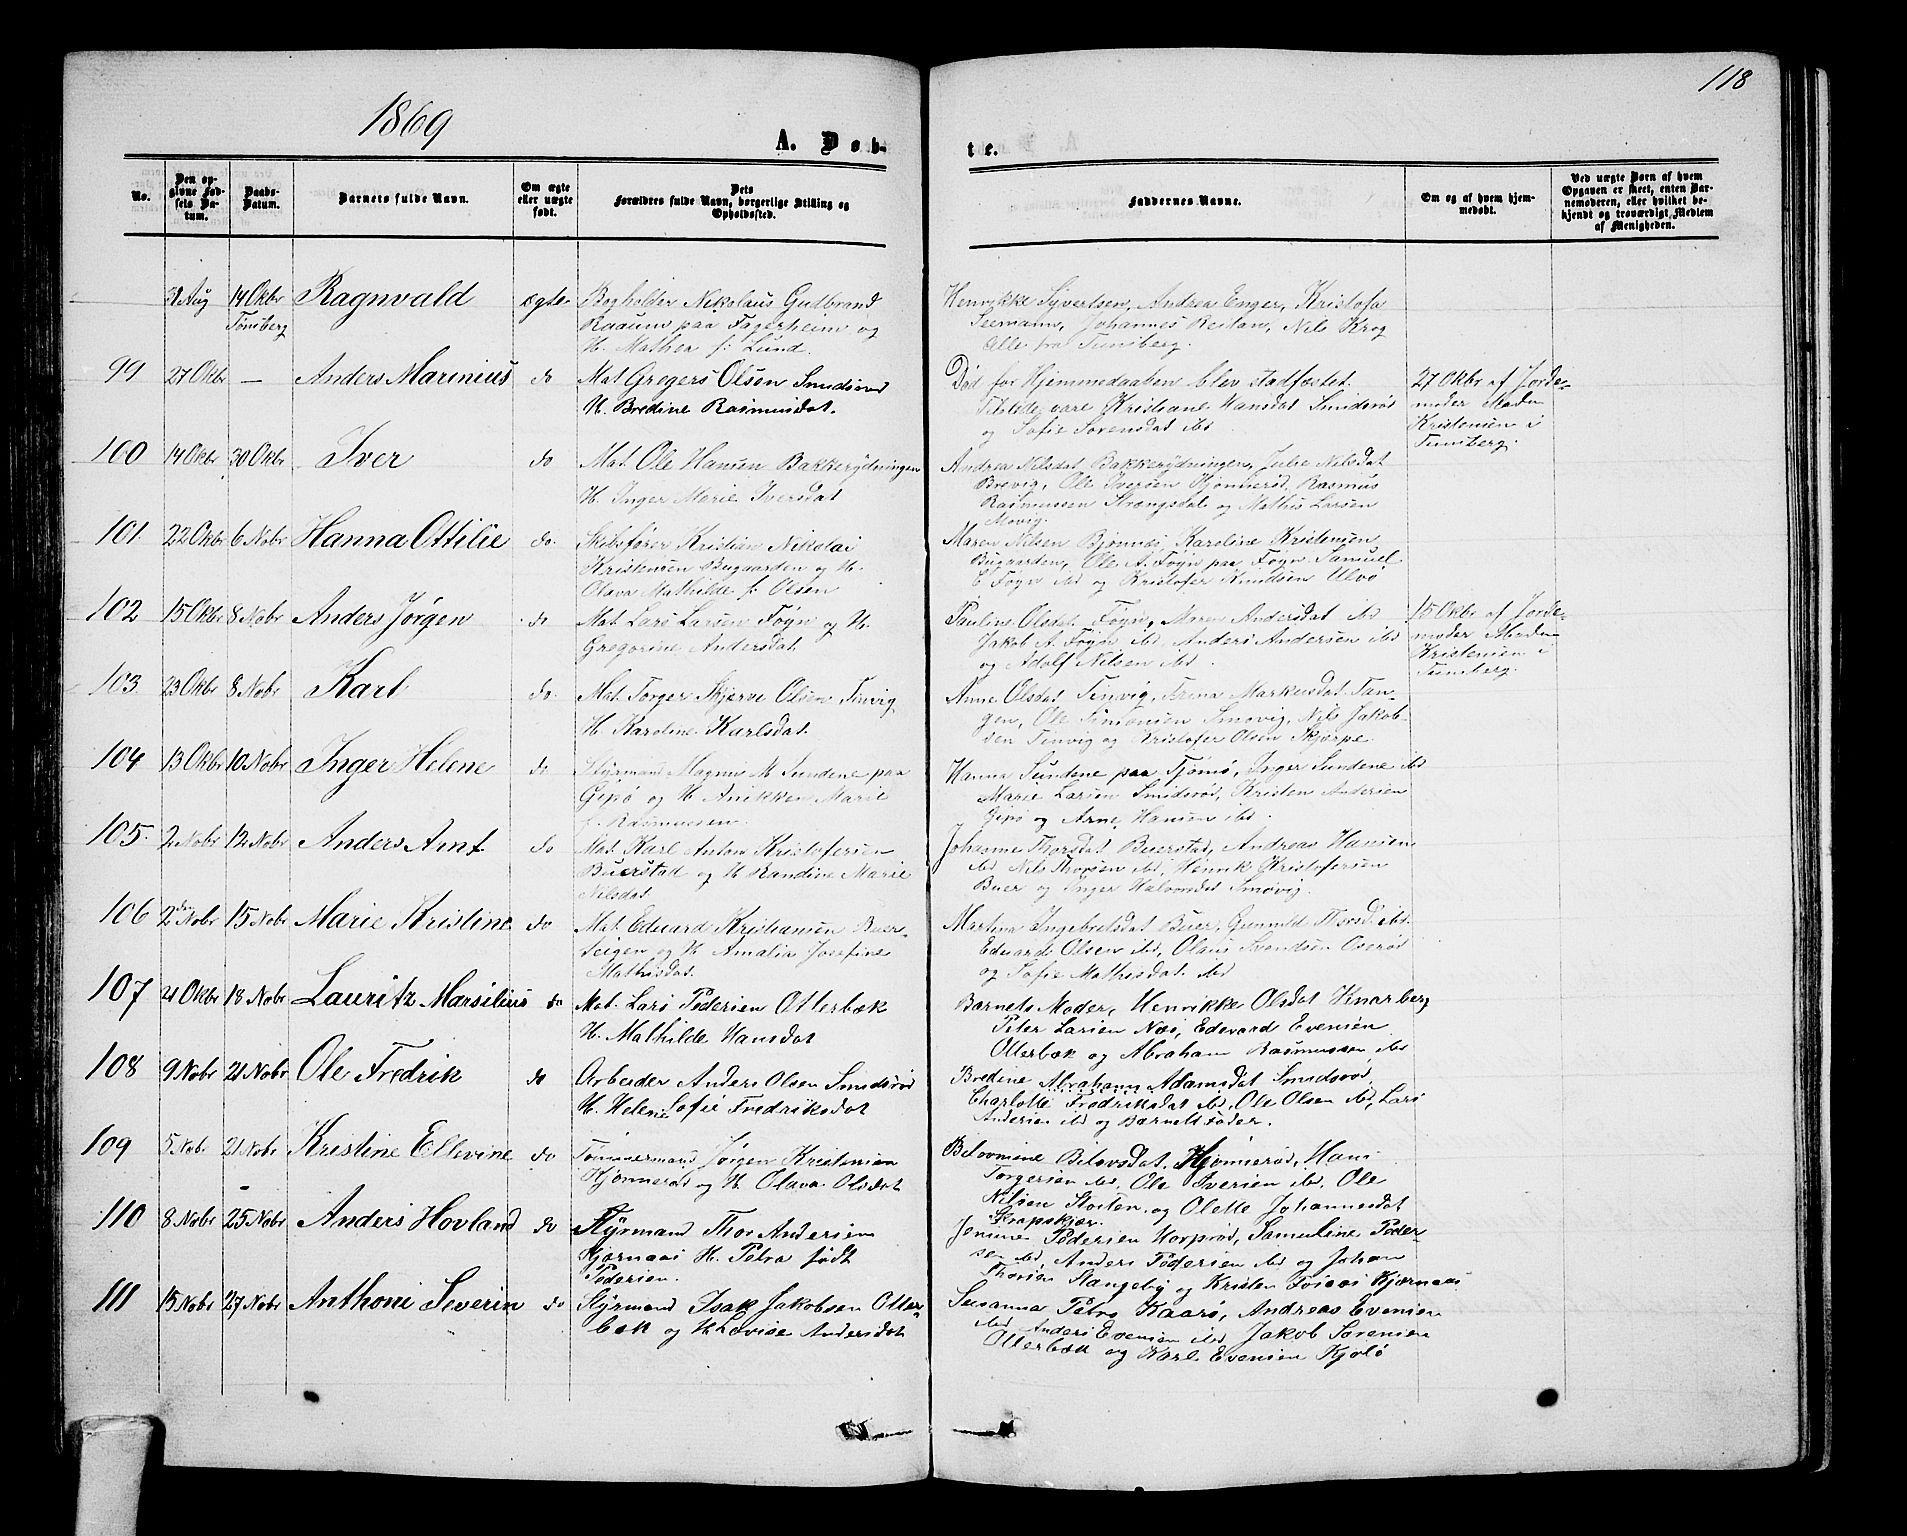 118
1869
A. Døb-
te.
No.
Den op-
givne Fød-
sels Da-
tum.
Daabs-
Datum.
Barnets fulde Navn.
Om ægte
eller uægte
født.
Dets
Forældres fulde Navn, borgerlige Stilling og
Opholdssted.
Faddernes Navne.
Om og af hvem hjem-
medøbt.
Ved uægte Børn af hvem
Opgaven er skeet, enten Bar-
nemoderen, eller hvilket be-
kjendt og troværdigt Medlem
af Menigheden.
31 Aug
14 Okbr
Tønsberg
Ragnvald
ægte
Bogholder Nikolaus Gudbrand
Raaum paa Fagerheim og
H. Mathea f. Lund.
Henrikke Syvertsen, Andrea Enger, Kristofa
Seemann, Johannes Bestan, Nils Krog
alle fra Tunsberg.
99
27 Okbr
—
Anders Marinius
do
Mat. Gregers Olsen Smidsrød
H. Bredine Rasmusdat.
Død før Hjemmedaaben blev stadfæstet.
Tilstede vare Kristiane Hansdat Smidsrød
og Sofie Sørensdat ibd
27 Okbr af Jorde-
moder Madm
Kristensen i
Tunsberg.
100
14 Okbr
30 Okbr
Iver
do
Mat. Ole Hansen Bakkerydningen
H. Inger Marie Iversdat
Andrea Nilsdat Bakkerydningen, Julie Nilsdat
Brevig, Ole Iversen Hjønnerød, Rasmus
Rasmussen Strengsdal og Mathis Larsen
Movig.
101.
22 Okbr
6 Nobr
Hanna Ottilie
do.
Skibsfører Kristian Nikolai
Kristensen Bugaarden og H.
Olava Mathilde f. Olsen
Maren Nilsen Bjønnes Karoline Kristensen
Bugaarden, Ole A. Føyn paa Føyn Samuel
E Føyn ibd og Kristofer Knudsen Ulvø
102
15 Okbr
8 Nobr
Anders Jørgen
do
Mat. Lars Larsen Føyn og H.
Gregorine Andersdat.
Pauline Olsdat. Føyn, Maren Andersdat ibd
Jakob A. Føyn ibd, Anders Andersen ibd
og Adolf Nilsen ibd.
15 Okbr af Jorde-
moder Madm
Kristensen i
Tunsberg.
103
23 Okbr
8 Nobr
Karl
do.
Mat. Torger Skjerve Olsen Tinvig
H. Karoline Karlsdat.
Anne Olsdat Tinvig, Trina Markusdat. Tan-
gen, Ole Simonsen Smøvig, Nils Jakob-
sen Tinvig og Kristofer Olsen Skjerpe.
104
13 Okbr
10 Nobr
Inger Helene
do
Styrmand Magnus M Sundene paa
Gipø og H. Anikken Marie
f. Rasmussen.
Hanna Sundene paa Tjømø, Inger Sundene ibd
Marie Larsen Smidsrød, Kristen Andersen
Gipø og Arne Hansen ibd.
105.
2 Nobr
12 Nobr
Anders Arnt.
do
Mat. Karl Anton Kristofersen
Buerstad og H Randine Marie
Nilsdat.
Johanne Thorsdat Buerstad, Andreas Hansen
ibd Nils Thorsen ibd, Henrik Kristofersen
Buer og Inger Halvorsdat Smøvig.
106
2den Nobr
15 Nobr
Marie Kristine
do
Mat. Edvard Kristiansen Buer-
steigen og H. Amalia Josefine
Mathisdat.
Martina Ingebretsdat Buer, Gunnild Thorsd. ibd.
Edvard Olsen ibd, Olaus Svendsen Oserød
og Sofie Mathisdat. ibd
107
21 Okbr
18 Nobr
Lauritz Marsilius
do
Mat. Lars Pedersen Otterbæk
H. Mathilde Hansdat
Barnets Moder, Henrikke Olsdat Knarberg
Peter Larsen Næs, Edevard Evensen
Otterbæk og Abraham Rasmussen ibd
108
9 Nobr
21 Nobr
Ole Fredrik
do
Arbeider Anders Olsen Smidsrød
H. Helene Sofie Fredriksdat
Bredine Abrahams Adamsdat Smidsrød,
Charlotte Fredriksdat ibd, Ole Olsen ibd, Lars
Andersen ibd og Barnets Fader.
109
5 Nobr
21 Nobr
Kristine Ellevine
do
Tømmermand Jørgen Kristensen
Hjønnerød og H. Olava Olsdat
Belovmine Belovsdat. Hjønnerød, Hans
Torgersen ibd, Ole Iversen ibd, Ole
Nilsen Storten og Olette Johannesdat
Krapskjær.
110
8 Nobr
25 Nobr
Anders Hovland
do
Styrmand Thor Andersen
Kjærnaas H. Petra født
Pedersen.
Jensine Pedersen Horprød, Samuline Peder-
sen ibd, Anders Pedersen ibd og Johan
Thorsen Stangeby og Kristen Tobias Kjærnaas
111
15 Nobr
27 Nobr
Anthoni Severin
do
Styrmand Isak Jakobsen Otter-
bæk og H. Lovise Andersdat
Susanna Petra Kaarø, Andreas Evensen
ibd Anders Evensen ibd, Jakob Sørensen
Otterbæk og Karl Evensen Kjølø